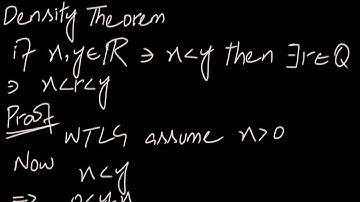 Density Theorem
if x, y ∈ ℝ ∋ x < y then ∃ r ∈ Q
∋ x < r < y
Proof
WTLG assume x > 0
Now x < y
⇒ 0 < y - x